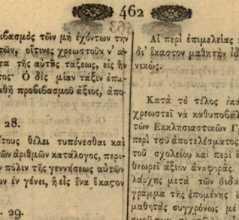 462
βιβασμὸς τῶν μὴ ἐχόντων τὴν
τῶν, οἵτινες χρεωστοῦν ν' ἀ-
τα τῆς αὐτῆς τάξεως, εἰς ἣν
τος· Ὁ δὶς μίαν τάξιν ἐπα-
ιθῇ προβιβασμοῦ ἄξιος, ἀπο-
28.
ἔτους θέλει τυπόνεσθαι καὶ
τῶν ἀριθμῶν κατάλογος, περι-
ν πόλιν τῆς γεννήσεως αὐτῶν
ων ἐν γένει, ἢ εἰς ἕνα ἕκαστον
29.
Αἱ περὶ ἐπιμελείας
δι' ἕκαστον μαθητὴν
νικῶς.
Κατὰ τὸ τέλος
χρεωστεῖ νὰ καθυποβάλ
τῶν Ἐκκλησιαστικῶν Γ
περὶ τοῦ ἀποτελέσματος
τοῦ σχολείου καὶ περὶ
θεωρεῖ ἀξίων ἀναφορᾶς.
λάρχης μετὰ τῶν διδα
γραμμα τῆς ἑπομένης
μαθητὰς συγχρόνως μὲ